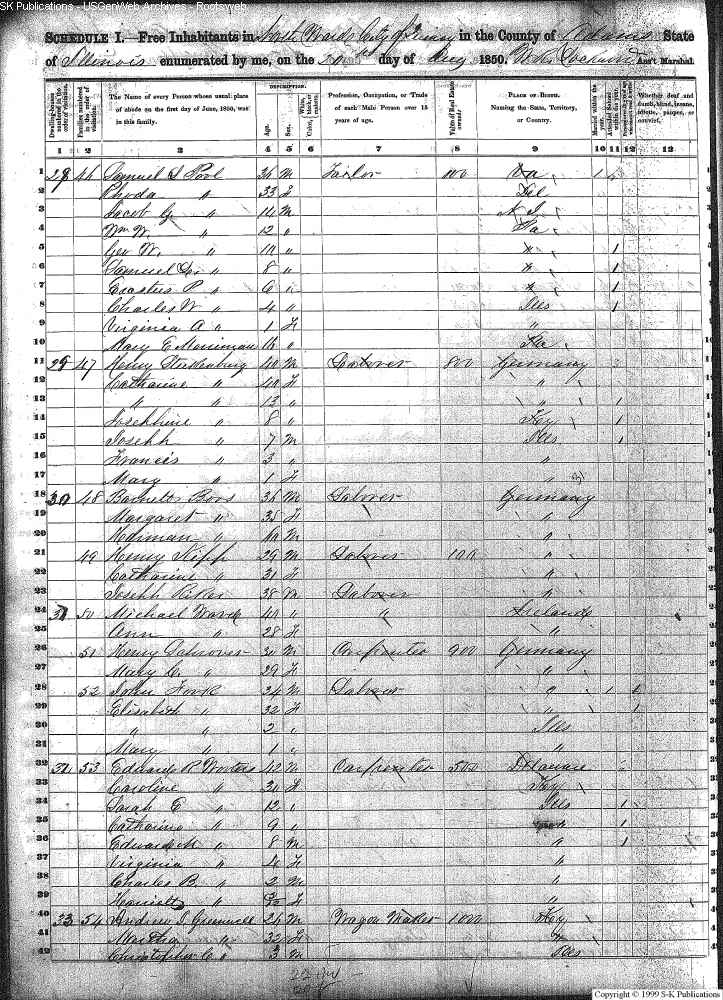 SK Publications - USGenWeb Archives - Rootsweb
SCHEDULE I.—Free Inhabitants in North Ward City of Quincy in the County of Adams State
of Illinois enumerated by me, on the day of Aug 1850. Ass't Marshal
Dwelling-houses numbered in the order of visitation.
Families numbered in the order of visitation.
The Name of every Person whose usual place of abode on the first day of June, 1850, was in this family.
DESCRIPTION.
Age.
Sex.
Color, White, black, or mulatto.
Profession, Occupation, or Trade of each Male Person over 15 years of age.
Value of Real Estate owned.
PLACE OF BIRTH. Naming the State, Territory, or Country.
Married within the year.
Attended School within the year.
Whether deaf and dumb, blind, insane, idiotic, pauper, or convict.
1 2 3 4 5 6 7 8 9 10 11 12 13
1 46 Samuel Pool 36 M Tailor 100
2 Rhoda " 33 F Del
3 Jacob G. " 14 M N J
4 Wm W. " 12 " Pa
5 Geo W. " 10 " " 1
6 Samuel " 8 " " 1
7 Erastus P " 6 " " 1
8 Charles W " 4 " Ills 1
9 Virginia A " 1 F "
10 Mary E Merriman 16 "
11 29 47 Henry 40 M Laborer 800 Germany
12 Catharine " 40 F "
13 " " 13 " " 1
14 Josephine " 8 " Key 1
15 Joseph " 7 M Ills 1
16 Francis " 3 " "
17 Mary " 1 F "
18 30 48 Barnett Boos 36 M Laborer Germany
19 Margaret " 35 F "
20 Herman " 10 M "
21 49 Henry Kipp 29 M Laborer 100 "
22 Catharine " 31 F "
23 Joseph 38 M Laborer "
24 31 50 Michael Ward 40 " " Ireland
25 Ann " 28 F "
26 51 Henry 30 M Carpenter 900 Germany
27 Mary C. " 29 F "
28 52 John Fork 34 M Laborer " 1 1
29 Elisabeth " 32 F " 1
30 " " 2 " Ills
31 Mary " 1 " "
32 53 Edward R Wooters 42 M Carpenter 500 Delaware
33 Caroline " 31 F Key
34 Sarah E " 12 " Ills 1
35 Catharine " 9 " " 1
36 Edward M " 8 M " 1
37 Virginia " 4 F "
38 Charles B. " 2 M "
39 Henrietta " F "
40 33 54 Andrew J Greenwell 26 M Wagon Maker 1000 Key
41 Martha " 32 F "
42 Christopher C " 3 M Ills
Copyright © 1999 S-K Publications